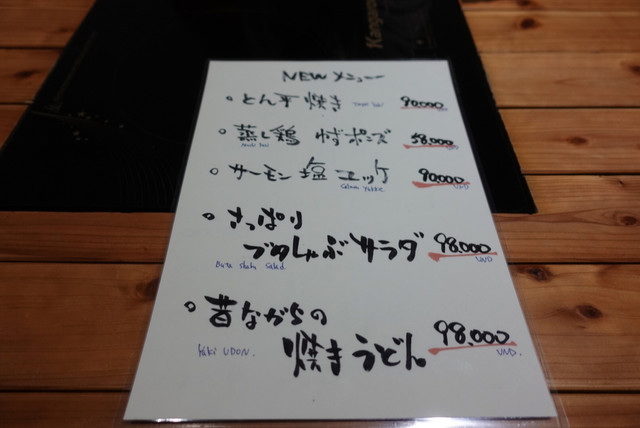 NEW メニュー
• とん平焼き 90,000
• 蒸し鶏 ポンズ 58,000
• サーモン塩ユッケ 90,000 VND
• さっぱり
ブタしゃぶサラダ 98,000
Buta shabu salad. VND
• 昔ながらの
焼きうどん 98,000
Yaki UDON. VND.